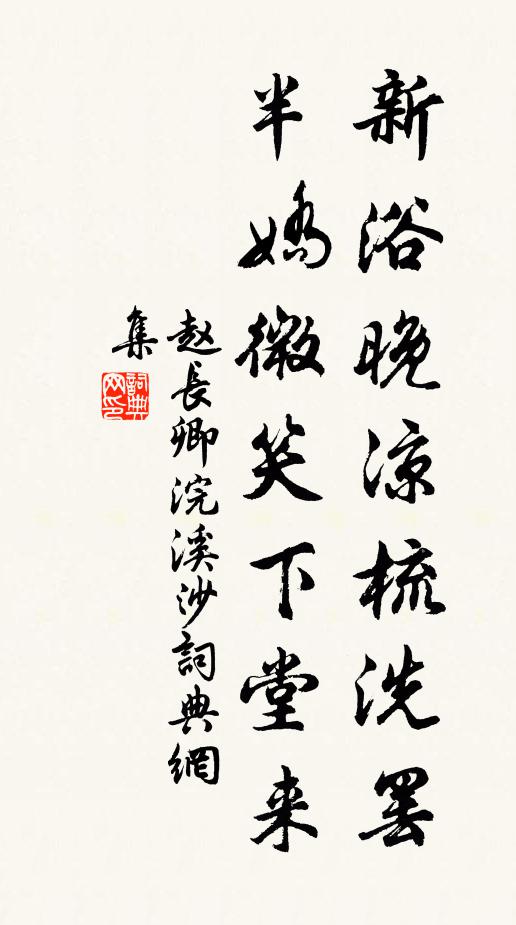 新浴晚凉梳洗罢
半嬌微笑下堂来
赵長卿浣溪沙詞典網
集
詞典
网印